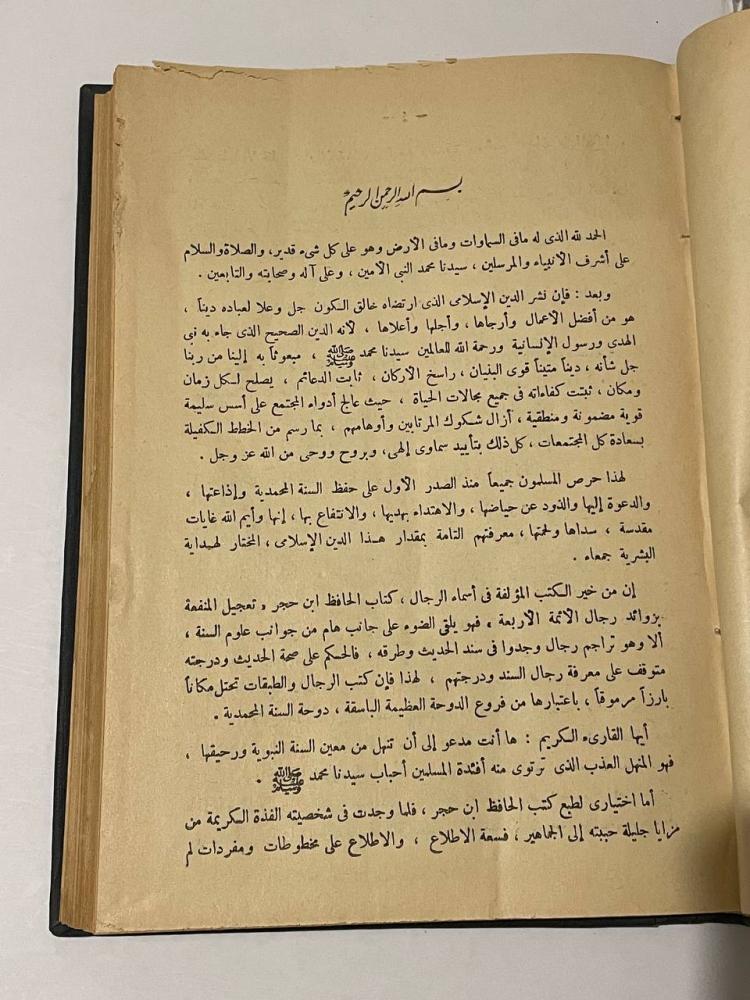 - ٤ -
بسم الله الرحمن الرحيم
الحمد لله الذى له مافى السماوات ومافى الأرض وهو على كل شىء قدير، والصلاة والسلام
على أشرف الأنبياء والمرسلين ، سيدنا محمد النبى الأمين ، وعلى آله وصحابته والتابعين .
وبعد : فإن نشر الدين الإسلامى الذى ارتضاه خالق الكون جل وعلا لعباده ديناً ،
هو من أفضل الأعمال وأرجاها ، وأجلها وأعلاها ، لأنه الدين الصحيح الذى جاء به نبى
الهدى ورسول الإنسانية ورحمة الله للعالمين سيدنا محمد ﷺ ، مبعوثاً به إلينا من ربنا
جل شأنه ، ديناً متيناً قوى البنيان ، راسخ الأركان ، ثابت الدعائم ، يصلح لكل زمان
ومكان ، ثبتت كفاءاته فى جميع مجالات الحياة ، حيث عالج أدواء المجتمع على أسس سليمة
قوية مضمونة ومنطقية ، أزال شكوك المرتابين وأوهامهم ، بما رسم من الخطط الكفيلة
بسعادة كل المجتمعات ، كل ذلك بتأييد سماوى إلهى، وبروح ووحى من الله عز وجل .
لهذا حرص المسلمون جميعاً منذ الصدر الأول على حفظ السنة المحمدية وإذاعتها ،
والدعوة إليها والذود عن حياضها ، والاهتداء بهديها ، والانتفاع بها ، إنها وأيم الله غايات
مقدسة ، سداها ولحمتها ، معرفتهم التامة بمقدار هذا الدين الإسلامى ، المختار لهداية
البشرية جمعاء .
إن من خير الكتب المؤلفة فى أسماء الرجال ، كتاب الحافظ ابن حجر « تعجيل المنفعة
بزوائد رجال الأئمة الأربعة » فهو يلقى الضوء على جانب هام من جوانب علوم السنة ،
ألا وهو تراجم رجال وجدوا فى سند الحديث وطرقه ، فالحكم على صحة الحديث ودرجته
متوقف على معرفة رجال السند ودرجتهم ، لهذا فإن كتب الرجال والطبقات تحتل مكاناً
بارزاً مرموقاً ، باعتبارها من فروع الدوحة العظيمة الباسقة ، دوحة السنة المحمدية .
أيها القارىء الكريم : ها أنت مدعو إلى أن تنهل من معين السنة النبوية ورحيقها ،
فهو المنهل العذب الذى ترتوى منه أفئدة المسلمين أحباب سيدنا محمد ﷺ .
أما اختيارى لطبع كتب الحافظ ابن حجر ، فلما وجدت فى شخصيته الفذة الكريمة من
مزايا جليلة حببته إلى الجماهير ، فسعة الاطلاع ، والاطلاع على مخطوطات ومفردات لم